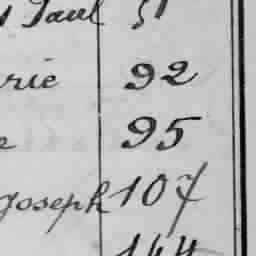 Paul 51
rie 92
95
Joseph 107
144